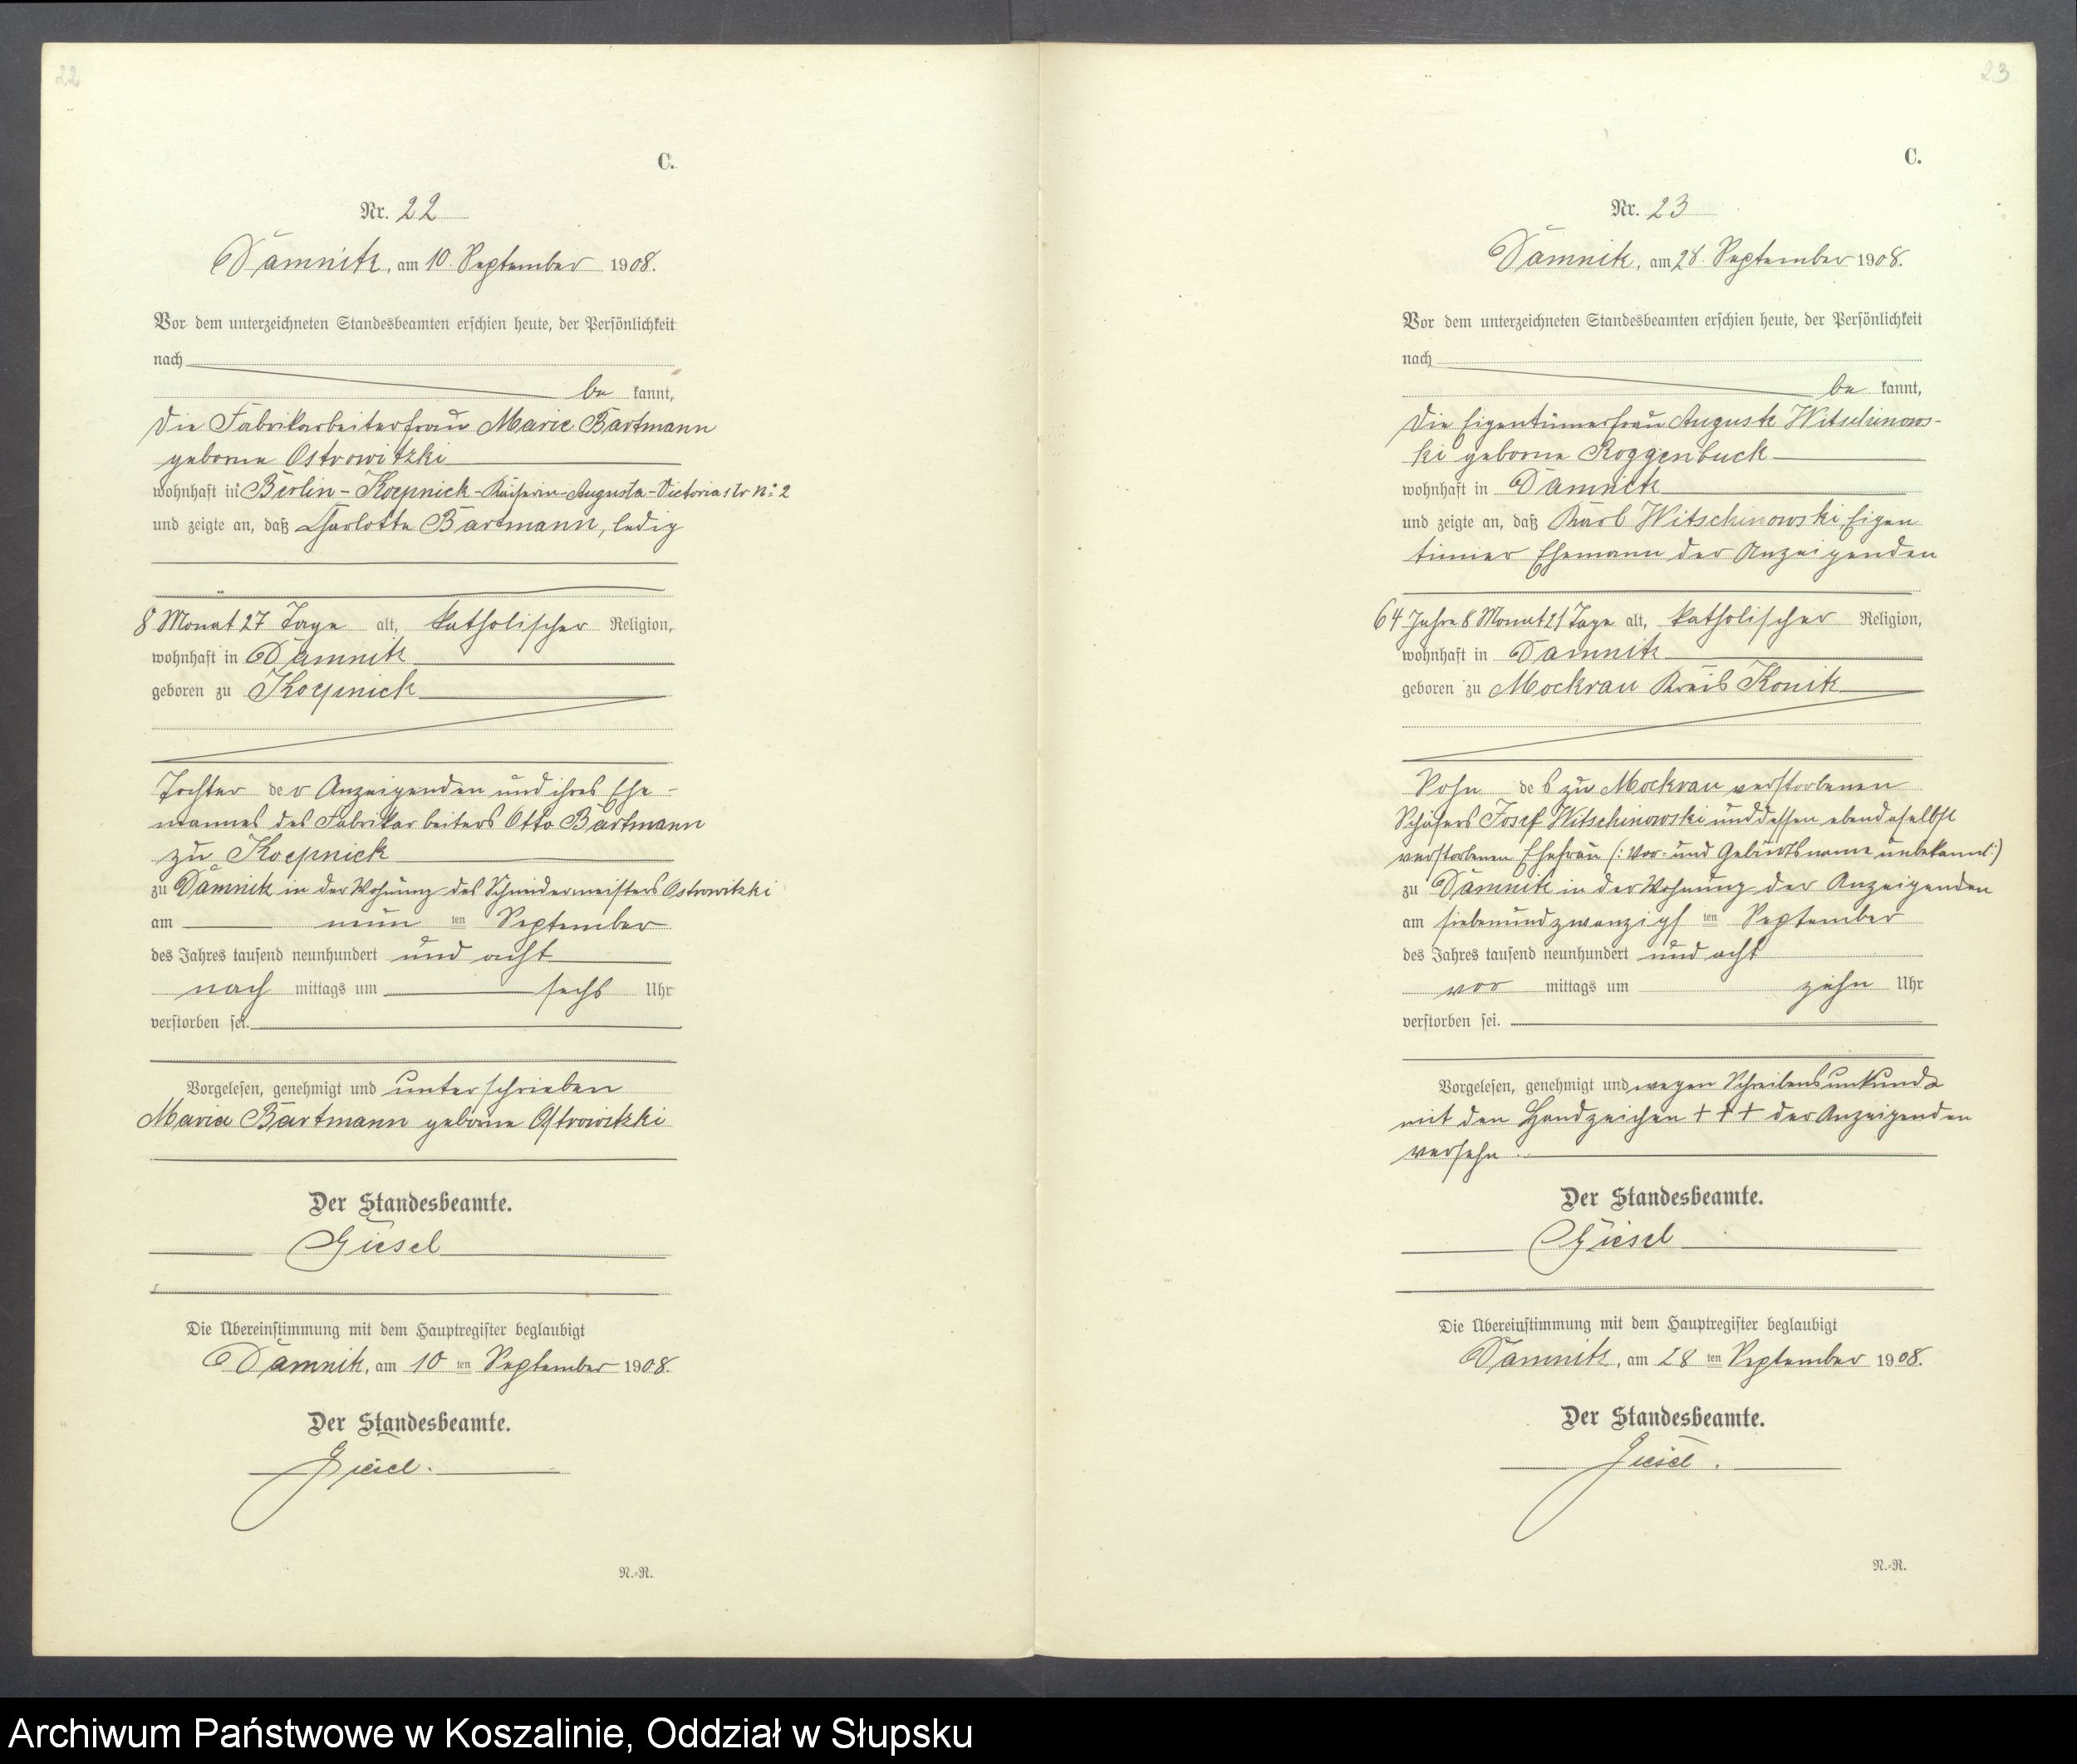 22
C.
Nr. 22
Damnitz, am 10. September 1908.
Vor dem unterzeichneten Standesbeamten erschien heute, der Persönlichkeit
nach
be kannt,
die Fabrikarbeiterfrau Marie Bartmann
geborne Ostrowitzki
wohnhaft in Berlin-Koepnick-Kaiserin-Augusta-Victoriastr No: 2
und zeigte an, daß Charlotte Bartmann, ledig
8 Monat 27 Tage alt, katholischer Religion,
wohnhaft in Damnitz
geboren zu Koepnick
Tochter der Anzeigenden und ihres Ehe-
mannes des Fabrikarbeiters Otto Bartmann
zu Koepnick
zu Damnitz in der Wohnung des Schneidermeisters Ostrowitzki
am neun ten September
des Jahres tausend neunhundert und acht
nach mittags um sechs Uhr
verstorben sei.
Vorgelesen, genehmigt und unterschrieben
Marie Bartmann geborne Ostrowitzki
Der Standesbeamte.
Giesel
Die Übereinstimmung mit dem Hauptregister beglaubigt
Damnitz, am 10 ten September 1908.
Der Standesbeamte.
Giesel.
N.-R.
23
C.
Nr. 23
Damnitz, am 28. September 1908.
Vor dem unterzeichneten Standesbeamten erschien heute, der Persönlichkeit
nach
be kannt,
die Eigentümerfrau Auguste Witschinows-
ki geborne Roggenbuck
wohnhaft in Damnitz
und zeigte an, daß Karl Witschinowski, Eigen
tümer Ehemann der Anzeigenden
64 Jahre 8 Monat 21 Tage alt, katholischer Religion,
wohnhaft in Damnitz
geboren zu Mockrau Kreis Konitz
Sohn des zu Mockrau verstorbenen
Schäfers Josef Witschinowski und dessen ebendaselbst
verstorbenen Ehefrau (: Vor- und Geburtsname unbekannt:)
zu Damnitz in der Wohnung der Anzeigenden
am siebenundzwanzigs ten September
des Jahres tausend neunhundert und acht
vor mittags um zehn Uhr
verstorben sei.
Vorgelesen, genehmigt und wegen Schreibensunkunde
mit den Handzeichen + + + der Anzeigenden
versehn.
Der Standesbeamte.
Giesel
Die Übereinstimmung mit dem Hauptregister beglaubigt
Damnitz, am 28 ten September 1908.
Der Standesbeamte.
Giesel.
N.-R.
Archiwum Państwowe w Koszalinie, Oddział w Słupsku